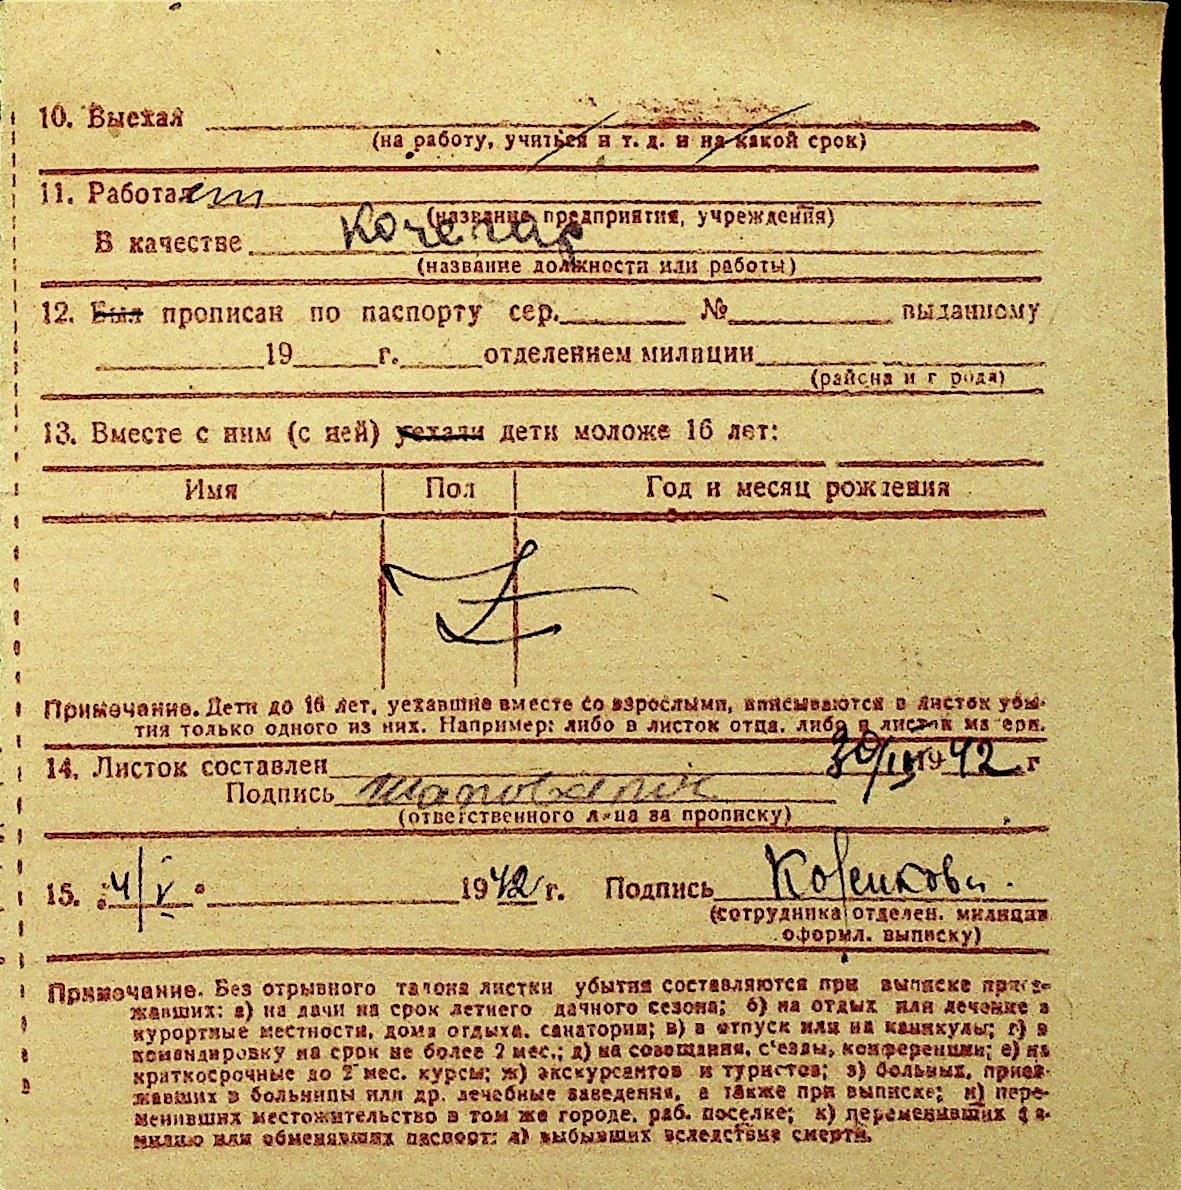 10. Выехал
(на работу, учиться и т. д. и на какой срок)
11. Работает
(название предприятия, учреждения)
В качестве кочегар
(название должности или работы)
12. Был прописан по паспорту сер. № выданному
19 г. отделением милиции
(района и города)
13. Вместе с ним (с ней) уехали дети моложе 16 лет:
Имя Пол Год и месяц рождения
Примечание. Дети до 16 лет, уехавшие вместе со взрослыми, вписываются в листок убы-
тия только одного из них. Например: либо в листок отца, либо в листок матери.
14. Листок составлен 30/IV 1942 г
Подпись
(ответственного лица за прописку)
15. "4/V" 1942 г. Подпись
(сотрудника отделен. милиции
оформл. выписку)
Примечание. Без отрывного талона листки убытия составляются при выписке приез-
жавших: а) на дачи на срок летнего дачного сезона; б) на отдых или лечение в
курортные местности, дома отдыха, санатории; в) в отпуск или на каникулы; г) в
командировку на срок не более 2 мес.; д) на совещания, с'езды, конференции; е) на
краткосрочные до 2 мес. курсы; ж) экскурсантов и туристов; з) больных, приез-
жавших в больницы или др. лечебные заведения, а также при выписке; и) пере-
менивших местожительство в том же городе, раб. поселке; к) переменивших фа-
милию или обменявших паспорт; л) выбывших вследствие смерти.